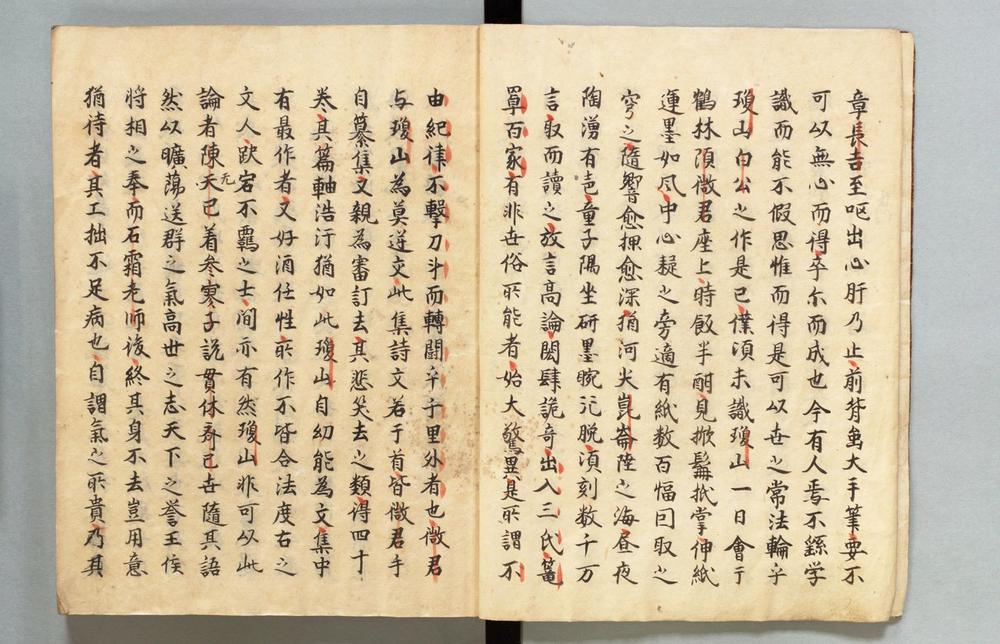 章長吉至嘔出心肝乃止前背虽大手筆要不
可以無心而得卒尔而成也今有人焉不繇学
識而能不假思惟而得是可以世之常法輪乎
瓊山白公之作是已僕頃未識瓊山一日會于
鶴林湏微君座上時飯半酣見掀髯抵掌伸紙
運墨如风中心疑之旁適有紙数百幅曰取之
穷之隨響愈押愈深猶河尖崑崙陸之海昼夜
陶湧有壱童子隅坐研墨腕沱脱頃刻数千万
言取而讀之放言高論閎肆詭奇出入三氏籠
罩百家有非世俗所能者始大驚異是所謂不
由紀律不擊刀斗而轉鬪乎千里外者也微君
与瓊山為莫逆交此集詩文若于首皆微君手
自纂集又親為審訂去其悲笑去之類得四十
巻其篇軸浩汗猶如此瓊山自幼能為文集中
有最作者又好酒任性所作不皆合法度右之
文人跌宕不羈之士间亦有然瓊山非可以此
論者陳天元已着参寒子説貫休齐己世隨其語
然以曠蕩送群之氣高世之志天下之誉王侯
将相之奉而石霜老师後終其身不去豈用意
猶待者其工拙不足病也自謂氣之所貴乃其